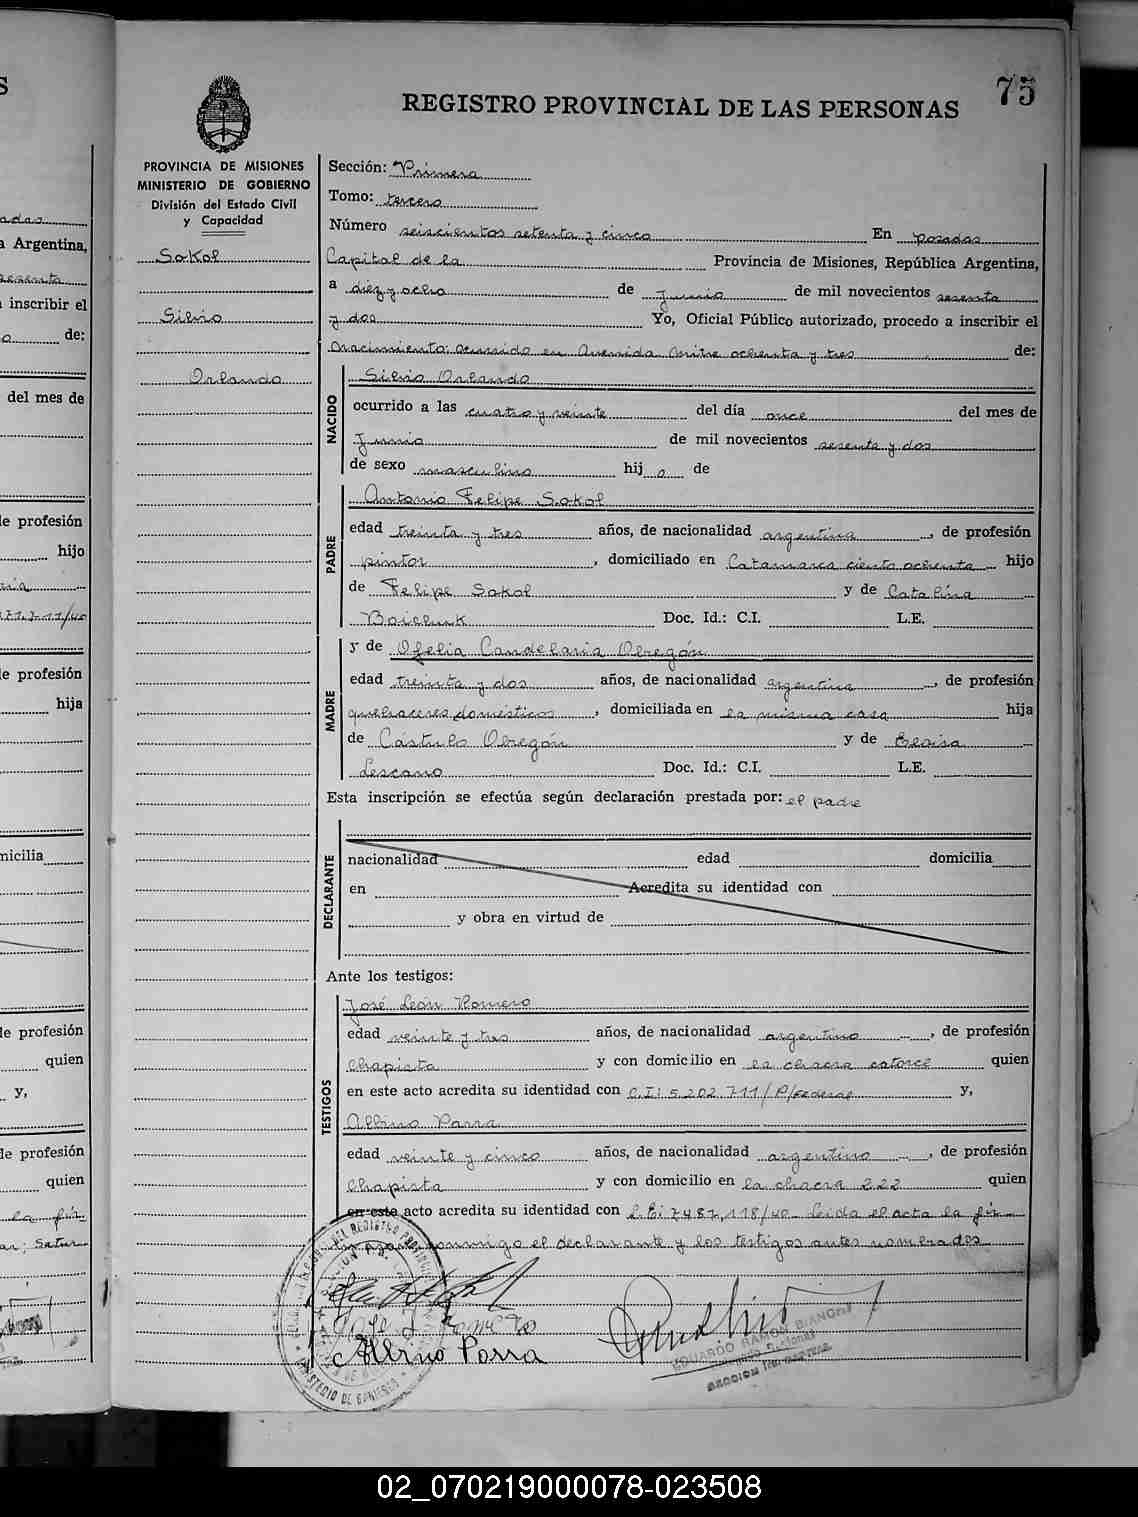 75
REGISTRO PROVINCIAL DE LAS PERSONAS
PROVINCIA DE MISIONES
MINISTERIO DE GOBIERNO
División del Estado Civil
y Capacidad
Sokol
Silvio
Orlando
Sección: Primera
Tomo: tercero
Número seiscientos setenta y cinco En posadas
Capital de la Provincia de Misiones, República Argentina,
a diez y ocho de Junio de mil novecientos sesenta
y dos Yo, Oficial Público autorizado, procedo a inscribir el
nacimiento ocurrido en Avenida Mitre ochenta y tres de:
NACIDO
Silvio Orlando
ocurrido a las cuatro y veinte del día once del mes de
Junio de mil novecientos sesenta y dos
de sexo masculino hij o de
PADRE
Antonio Felipe Sokol
edad treinta y tres años, de nacionalidad argentina, de profesión
pintor, domiciliado en Catamarca ciento ochenta hijo
de Felipe Sokol y de Catalina
Boichuk Doc. Id.: C.I. L.E.
MADRE
y de Ofelia Candelaria Obregón
edad treinta y dos años, de nacionalidad argentina, de profesión
quehaceres domésticos, domiciliada en la misma casa hija
de Cástulo Obregón y de Eloisa
Lescano Doc. Id.: C.I. L.E.
Esta inscripción se efectúa según declaración prestada por: el padre
DECLARANTE
nacionalidad edad domicilia
en Acredita su identidad con
y obra en virtud de
Ante los testigos:
TESTIGOS
José León Romero
edad veinte y tres años, de nacionalidad argentino, de profesión
Chapista y con domicilio en la chacra catorce quien
en este acto acredita su identidad con C.I: 5.202.711/P/Federal y,
Albino Parra
edad veinte y cinco años, de nacionalidad argentino, de profesión
Chapista y con domicilio en la chacra 222 quien
en este acto acredita su identidad con L.E: 7487,118/40 Leída el acta la fir-
conmigo el declarante y los testigos antes nomerados
José L Romero
Albino Parra
EDUARDO RAMON BIANCHI
02_070219000078-023508